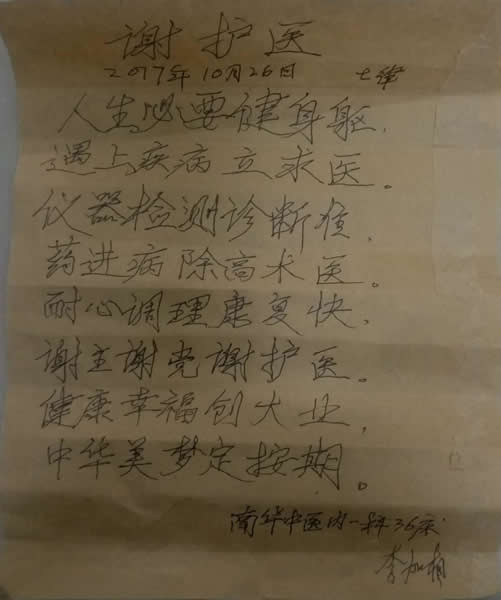 谢护医
2017年10月26日 七律
人生必要健身躯，
遇上疾病立求医。
仪器检测诊断准，
药进病除高术医。
耐心调理康复快，
谢主谢党谢护医。
健康幸福创大业，
中华美梦定按期。
南华中医内一科36床
李加有